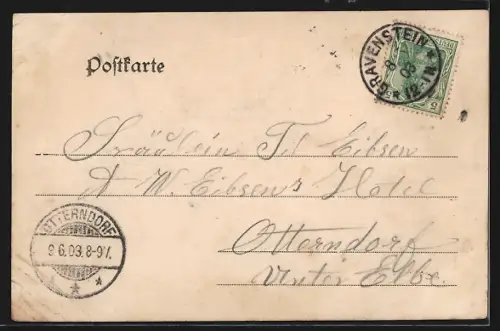 Postkarte
GRAVENSTEIN
8 6 03
12-1N.
Fräulein Td Eibsen
A W. Eibsen's Hotel
OTTERNDORF
9.6.03.8-9V.
Otterndorf
Unter Elbe.